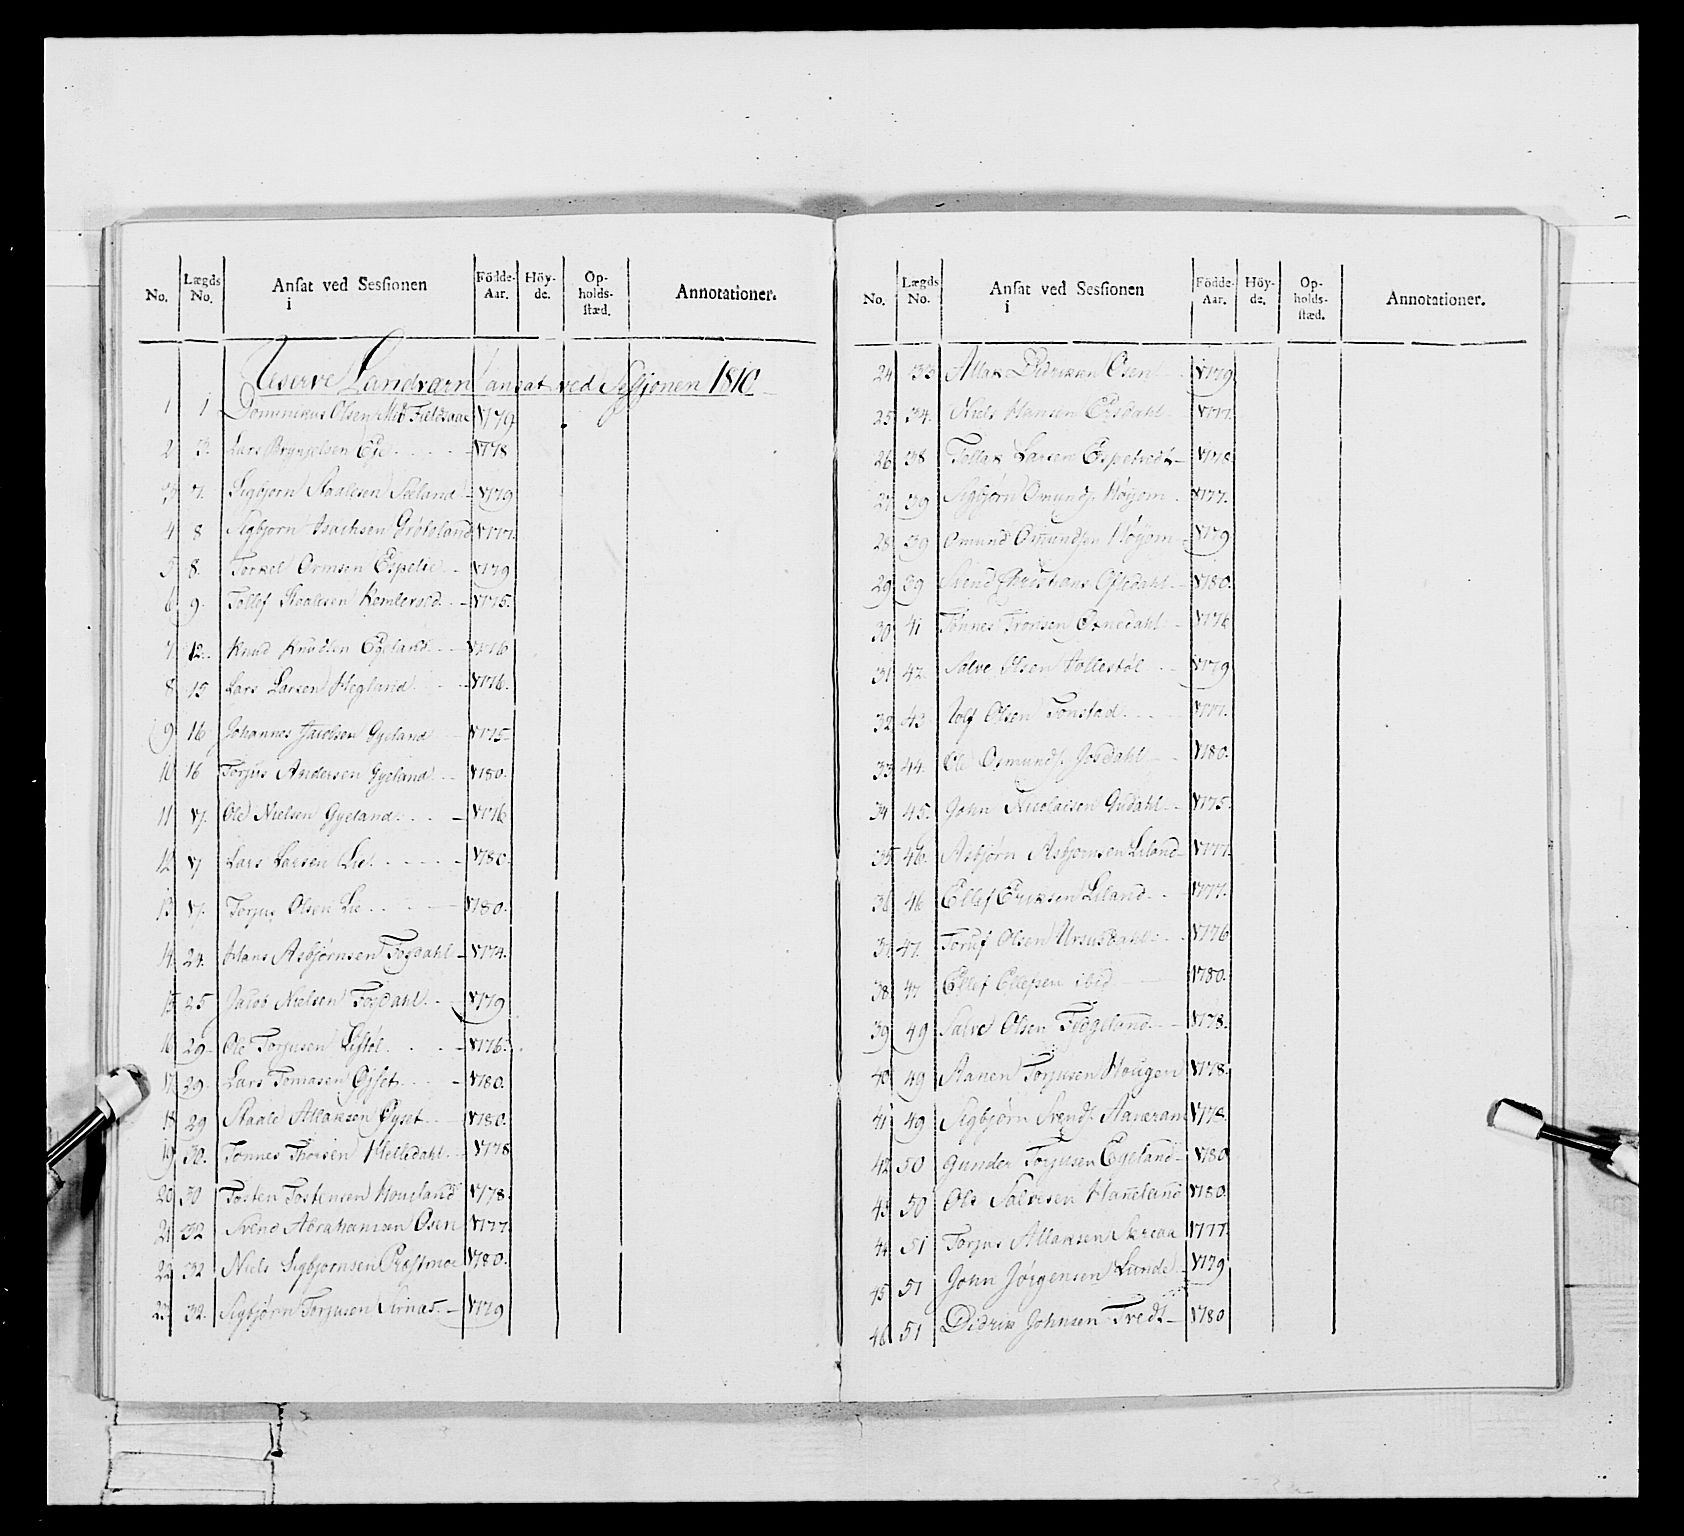 No. Lægds No. Ansat ved Sessionen i Födde-Aar. Höy-de. Op-holds-stæd. Annotationer.
Reserve Landværn ansat ved Sessjonen 1810
1 1 Dominikus Olsen Mid Fieldsaae 1779
2 3. Lars Brynjelsen Eje 1778
3 7. Sigbjorn Staalesen Seeland 1779
4 8 Sigbjorn Isachsen Grødsland 1777.
5 8. Torkel Ormsen Espelie 1779
6 9. Tollef Staalesen Kemlevold 1775.
7 12. Knud Knudsen Egeland 1776
8 15 Lars Larsen Hegland 1776.
9 16 Johannes Jacobsen Gyeland 1775
10 16 Torjus Andersen Gyeland 1780.
11 17. Ole Nielsen Gyeland 1776
12 17 Lars Larsen Lie 1780.
13 17. Torjus Olsen Lie 1780.
14 24. Hans Asbjørnsen Fosdahl 1774.
15 25 Jacob Nielsen Fosdahl 1779
16 29 Ole Torjusen Listøl 1776.
17 29. Lars Tomasen Øjset 1780.
18 29 Staale Atlaksen Øyset 1780.
19 30. Tønnes Thorsen Helledahl 1778
20 30 Tosten Tostensen Houeland 1778.
21 32 Svend Abrahamsen Osen 1777
22 32 Niels Sigbjornsen Røstmoe 1780.
23 32. Sigbjørn Torjusen Sirnas 1779
No. Lægds No. Ansat ved Sessionen i Födde-Aar. Höy-de. Op-holds-stæd. Annotationer.
24 33 Atlak Didriksen Osen 1779
25 34. Niels Hansen Egsdahl 1777.
26 38 Tollak Larsen Espetvedt 1778
27 39 Sigbjørn Omunds. Høyom 1777.
28 39 Omund Omundsen Høyom 1779
29 39 Svend Christians Ofstedahl 1780.
30 41 Tønnes Tronsen Ousdahl 1776
31 42. Salve Olsen Tollestøl 1779
32 43 Rolf Olsen Tonstad 1777.
33 44. Ole Osmunds. Josdahl 1780.
34 45. John Nicolaisen Gudahl 1775.
35 46. Asbjørn Asbjornsen Liland 1777.
36 46 Ellef Eriksen Liland 1777.
37 47. Toruf Olsen Ursusdahl 1776
38 47 Ellef Ellefsen ibid 1780.
39 49 Salve Olsen Fidgeland 1778.
40 49 Aanen Torjusen Hougen 1778.
41 49 Sigbjørn Svends. Aaveram 1778.
42 50 Gunder Torjusen Egeland 1780
43 50 Ole Salvesen Haneland 1780.
44 51 Torjus Atlaksen Skreaa 1777.
45 51 John Jørgensen Lunde 1779
46 51 Didrik Johnsen Tvedt 1780